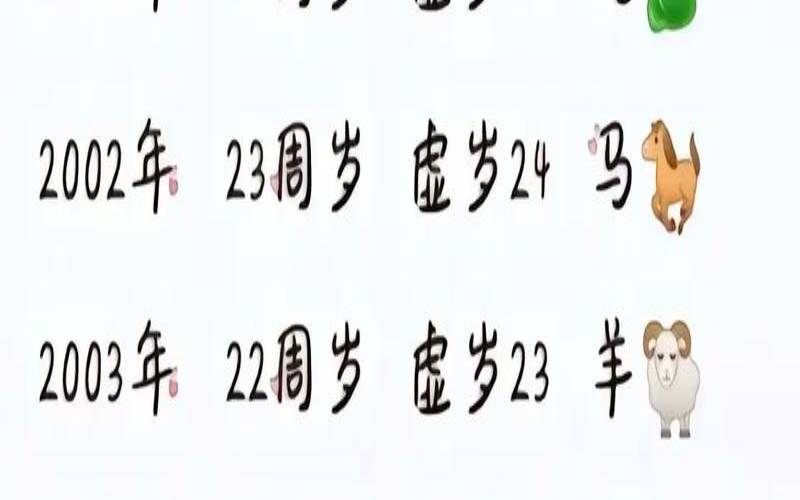 2002年 23周岁 虚岁24 马
2003年 22周岁 虚岁23 羊